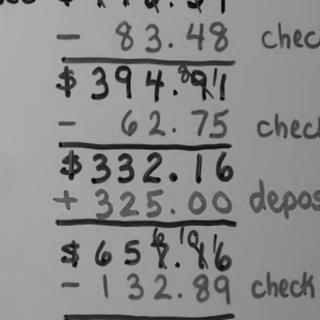 - 83.48 chec
$ 394.91
- 62.75 chec
$ 332.16
+ 325.00 depos
$ 657.16
- 132.89 check